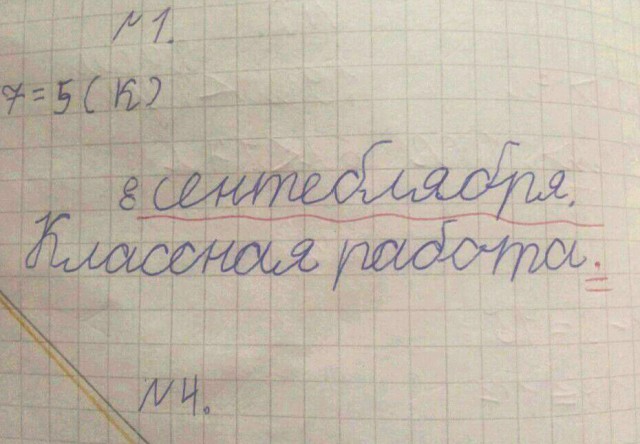 №1.
7=5(К)
8 сентеблября.
Классная работа.
№4.